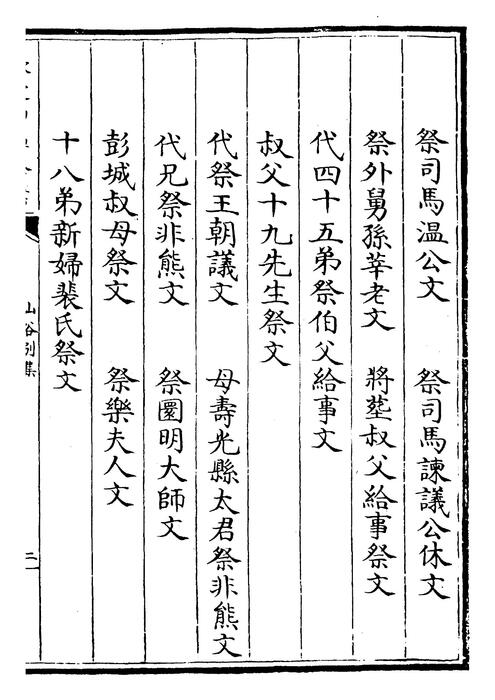 祭司馬温公文　祭司馬諫議公休文
祭外舅孫莘老文　將塟叔父給事祭文
代四十五弟祭伯父給事文
叔父十九先生祭文
代祭王朝議文　母壽光縣太君祭非熊文
代兄祭非熊文　祭圜明大師文
彭城叔母祭文　祭樂夫人文
十八弟新婦裴氏祭文
山谷别集
二